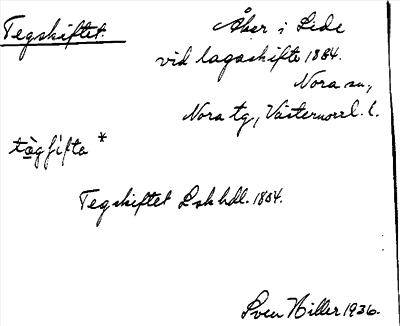 Tegskiftet.
Åker i Lide
vid lagaskifte 1884.
Nora sn,
Nora tg, Västernorrl. l.
tàgʃifta *
Tegskiftet Lskhdl. 1884.
Sven Hiller 1936.